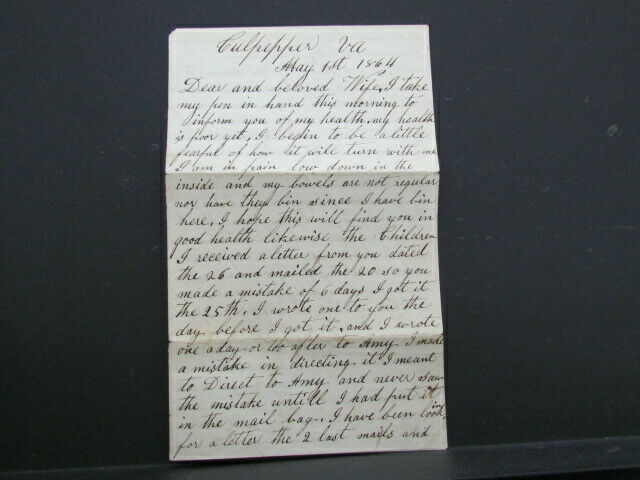 Culpepper Va
May 1st 1864
Dear and beloved Wife, I take
my pen in hand this morning to
inform you of my health, my health
is poor yet, I begin to be a little
fearful of how it will turn with me
I am in pain low down in the
inside and my bowels are not regular
nor have they bin since I have bin
here, I hope this will find you in
good health likewise the Children
I received a letter from you dated
the 26 and mailed the 20 so you
made a mistake of 6 days I got it
the 25th, I wrote one to you the
day before I got it, and I wrote
one a day or too after to Amy I made
a mistake in directing it I meant
to Direct to Amy and never saw
the mistake untill I had put it
in the mail bag, I have been looking
for a letter the 2 last mails and